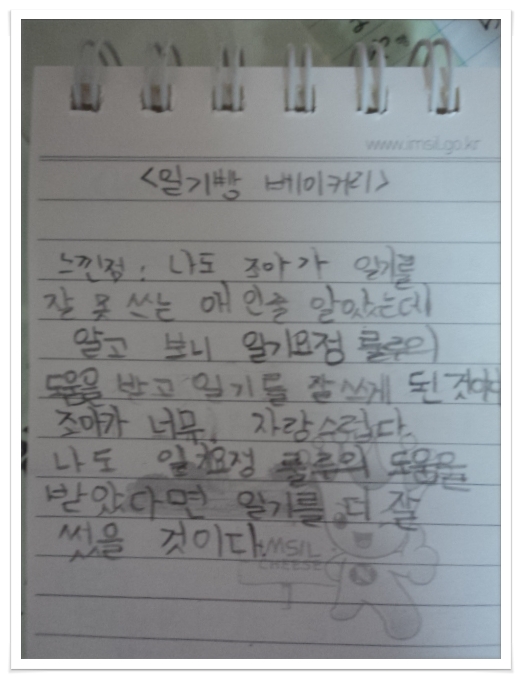 www.imsil.go.kr
<일기빵 베이커리>
느낀점 : 나도 조아가 일기를
잘 못 쓰는 애 인줄 알았는데
알고 보니 일기요정 룰루의
도움을 받고 일기를 잘 쓰게 된 것이다
조아가 너무 자랑스럽다.
나도 일기요정 룰루의 도움을
받았다면 일기를 더 잘
썼을 것이다.
IMSIL
CHEESE
N